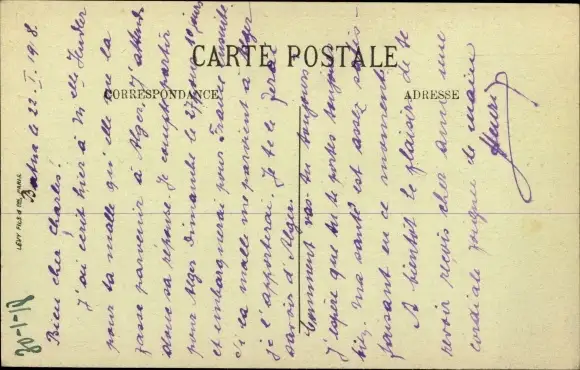 CARTE POSTALE
CORRESPONDANCE
ADRESSE
LEVY FILS & CIE, PARIS
30-1-18
Batna le 22. I. 1918.
Bien cher Charles.
J'ai écrit hier à Melle
pour ta malle qu'elle me la
fasse parvenir à Alger, J'attends
donc sa réponse. Je compte partir
pour Alger Dimanche le 27
et embarquerai pour France ensuite
Si la malle me parvient à Alger
je l'apporterai. Je te le ferai
savoir d'Alger.
Comment vas-tu toujours
J'espère que tu te portes toujours
Ma santé est assez satis-
faisant en ce moment.
A bientôt le plaisir de te
revoir reçois cher ami une
cordiale poignée de main
Henri